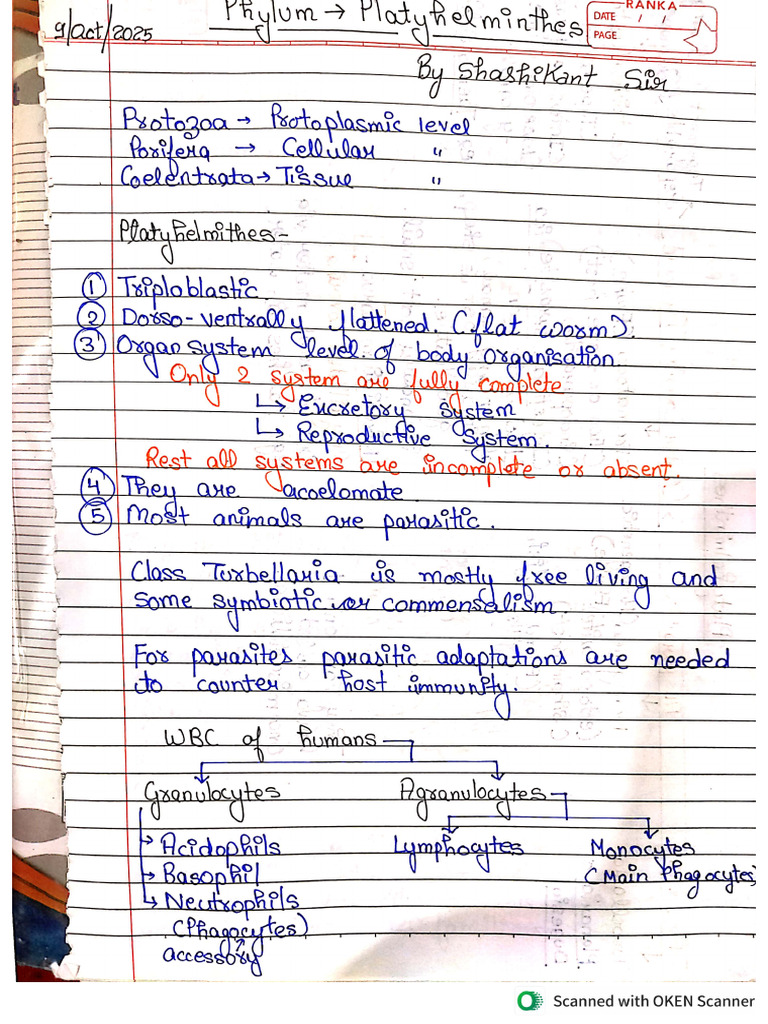 RANKA
DATE / /
PAGE
9/Oct/2025
Phylum → Platyhelminthes
By Shashikant Sir
Protozoa → Protoplasmic level
Porifera → Cellular "
Coelentrata → Tissue "
Platyhelmithes-
① Triploblastic.
② Dorso-ventrally flattened. (flat worm).
③ Organ system level of body organisation.
Only 2 system are fully complete
↳ Excretory system
↳ Reproductive system.
Rest all systems are incomplete or absent.
④ They are acoelomate.
⑤ Most animals are parasitic.
Class Turbellaria is mostly free living and
some symbiotic or commensalism.
For parasites parasitic adaptations are needed
to counter host immunity.
WBC of humans
Granulocytes Agranulocytes
Acidophils Lymphocytes Monocytes
Basophil (Main Phagocytes)
Neutrophils
(Phagocytes)
accessory
Scanned with OKEN Scanner